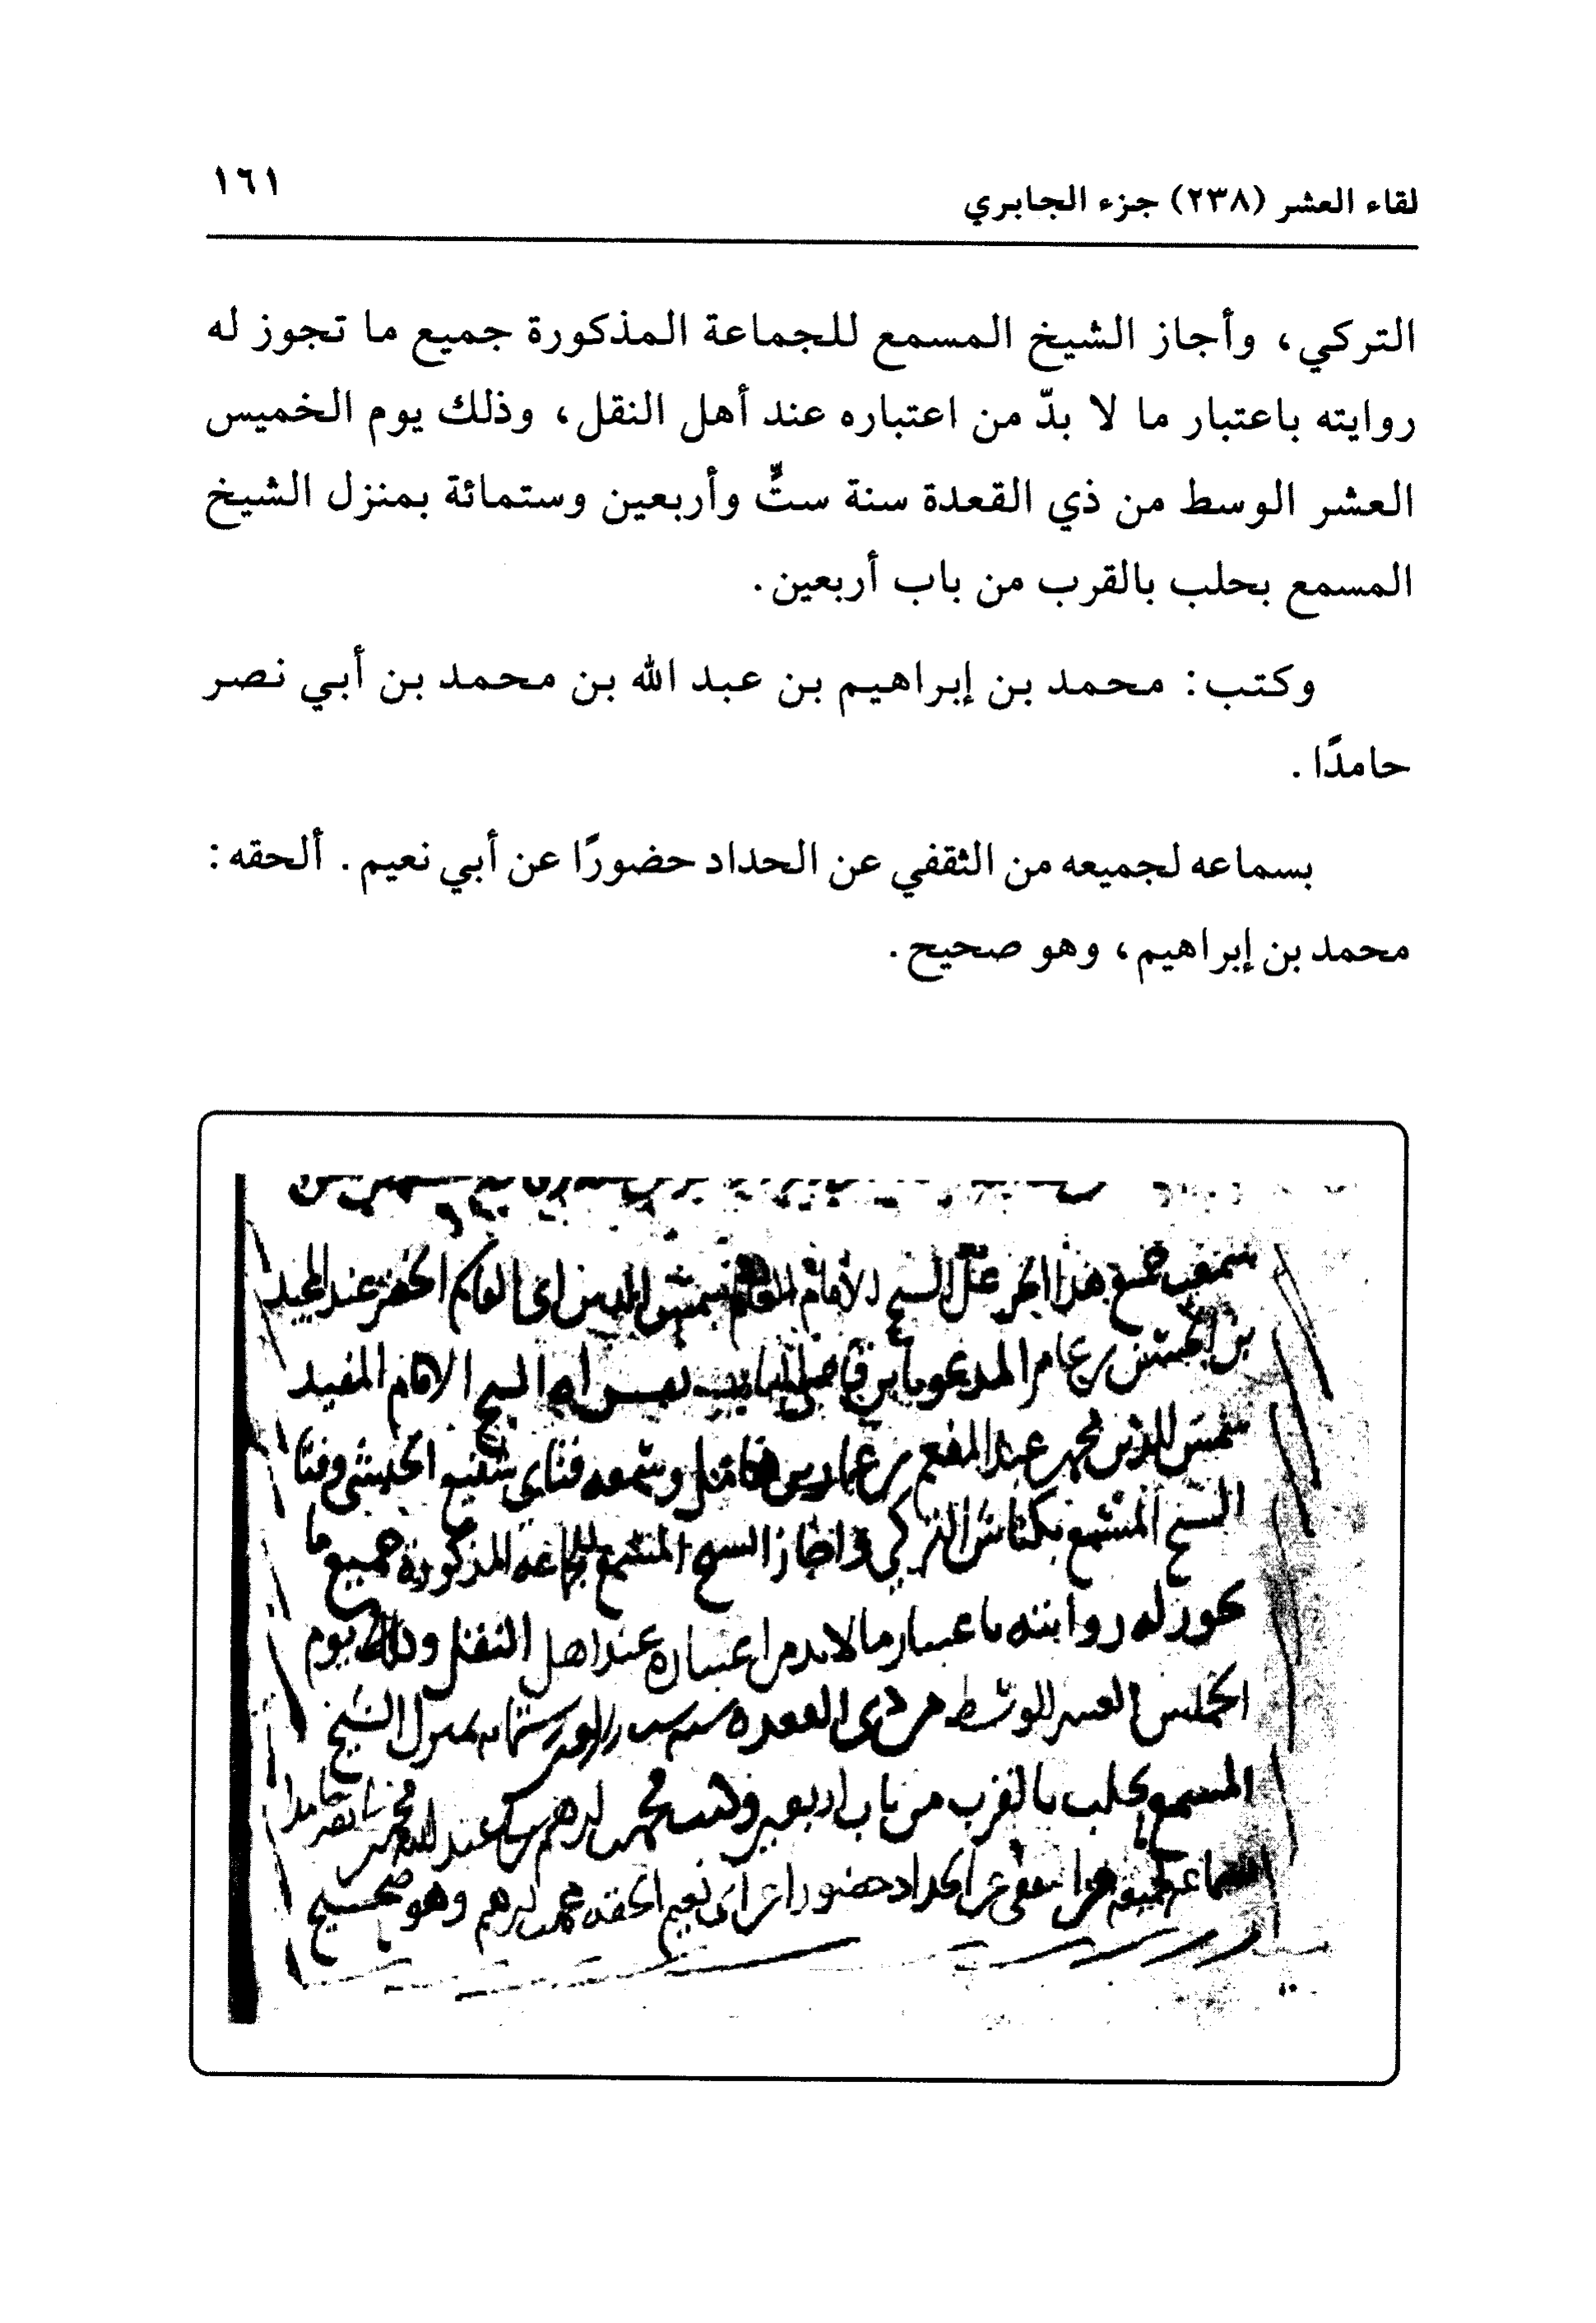 لقاء العشر (٢٣٨) جزء الجابري
١٦١
التركي، وأجاز الشيخ المسمع للجماعة المذكورة جميع ما تجوز له
روايته باعتبار ما لا بدّ من اعتباره عند أهل النقل، وذلك يوم الخميس
العشر الوسط من ذي القعدة سنة ستٍّ وأربعين وستمائة بمنزل الشيخ
المسمع بحلب بالقرب من باب أربعين.
وكتب: محمد بن إبراهيم بن عبد الله بن محمد بن أبي نصر
حامدًا.
بسماعه لجميعه من الثقفي عن الحداد حضورًا عن أبي نعيم. ألحقه:
محمد بن إبراهيم، وهو صحيح.
سمع جميع هذا الجز على الشيخ الامام شمس الدين ابي القاسم الخضر عبد المجيد
بن الحسن بن عامر المدعو بابن قاضي الباب الشيخ الامام المفيد
شمس الدين محمد عبد المنعم بن عمار بن هامل وسمعه فتاي شفيع الحبشي وفتا
الشيخ المسمع بكتاش التركي واجاز الشيخ المسمع للجماعه المذكورة جميع ما
تجوز له روايته باعتبار ما لابد من اعتباره عند اهل النقل وذلك يوم
الخميس العشر الوسط من ذي القعدة سنه ست واربعين وستمايه بمنزل الشيخ
المسمع بحلب بالقرب من باب اربعين وكتب محمد بن ابرهيم بن عبد الله بن محمد بن ابي نصر حامدا
بسماعه لجميعه من الثقفي عن الحداد حضورا عن ابي نعيم الحقه محمد بن ابرهيم وهو صحيح